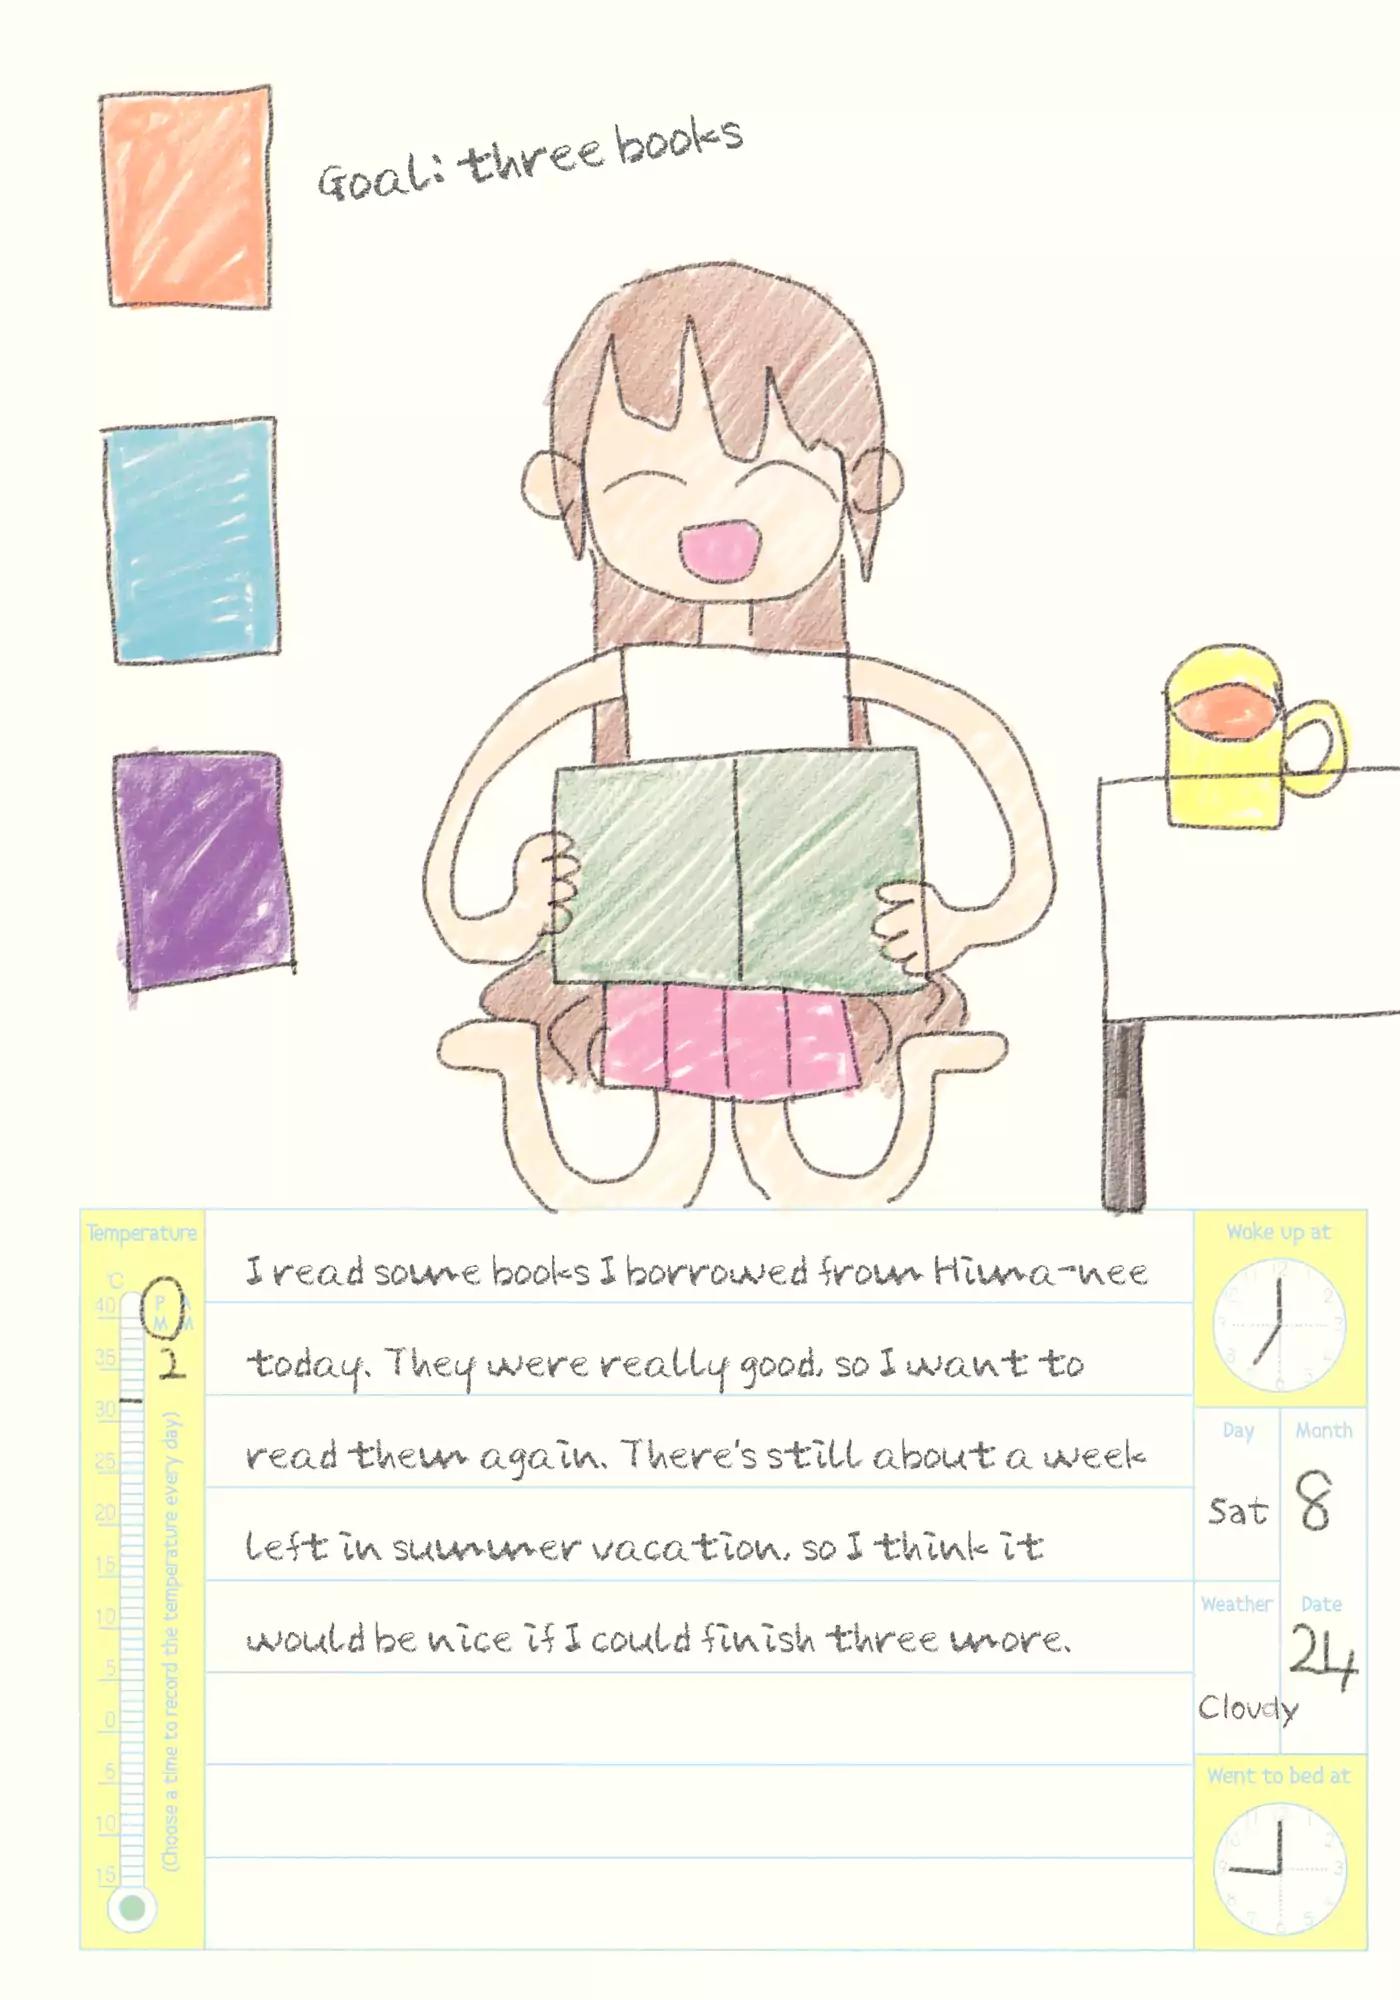 Goal: three books
Temperature
°C
40
35
30
25
20
15
10
5
0
5
10
15
PM
AM
2
(Choose a time to record the temperature every day)
I read some books I borrowed from Hima-nee
today. They were really good, so I want to
read them again. There's still about a week
left in summer vacation, so I think it
would be nice if I could finish three more.
Woke up at
Day
Sat
Month
8
Weather
Cloudy
Date
24
Went to bed at